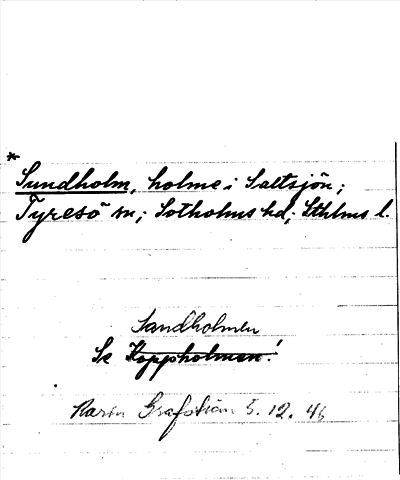 *
Sundholm, holme i Saltsjön;
Tyresö sn; Sotholms hd; Sthlms l.
Sandholmen
Se Koppholmen!
Karin 5.12.46